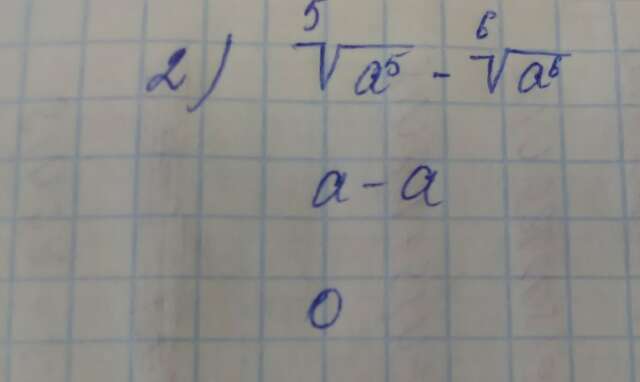 2) ⁵√a⁵ - ⁶√a⁶
a - a
0